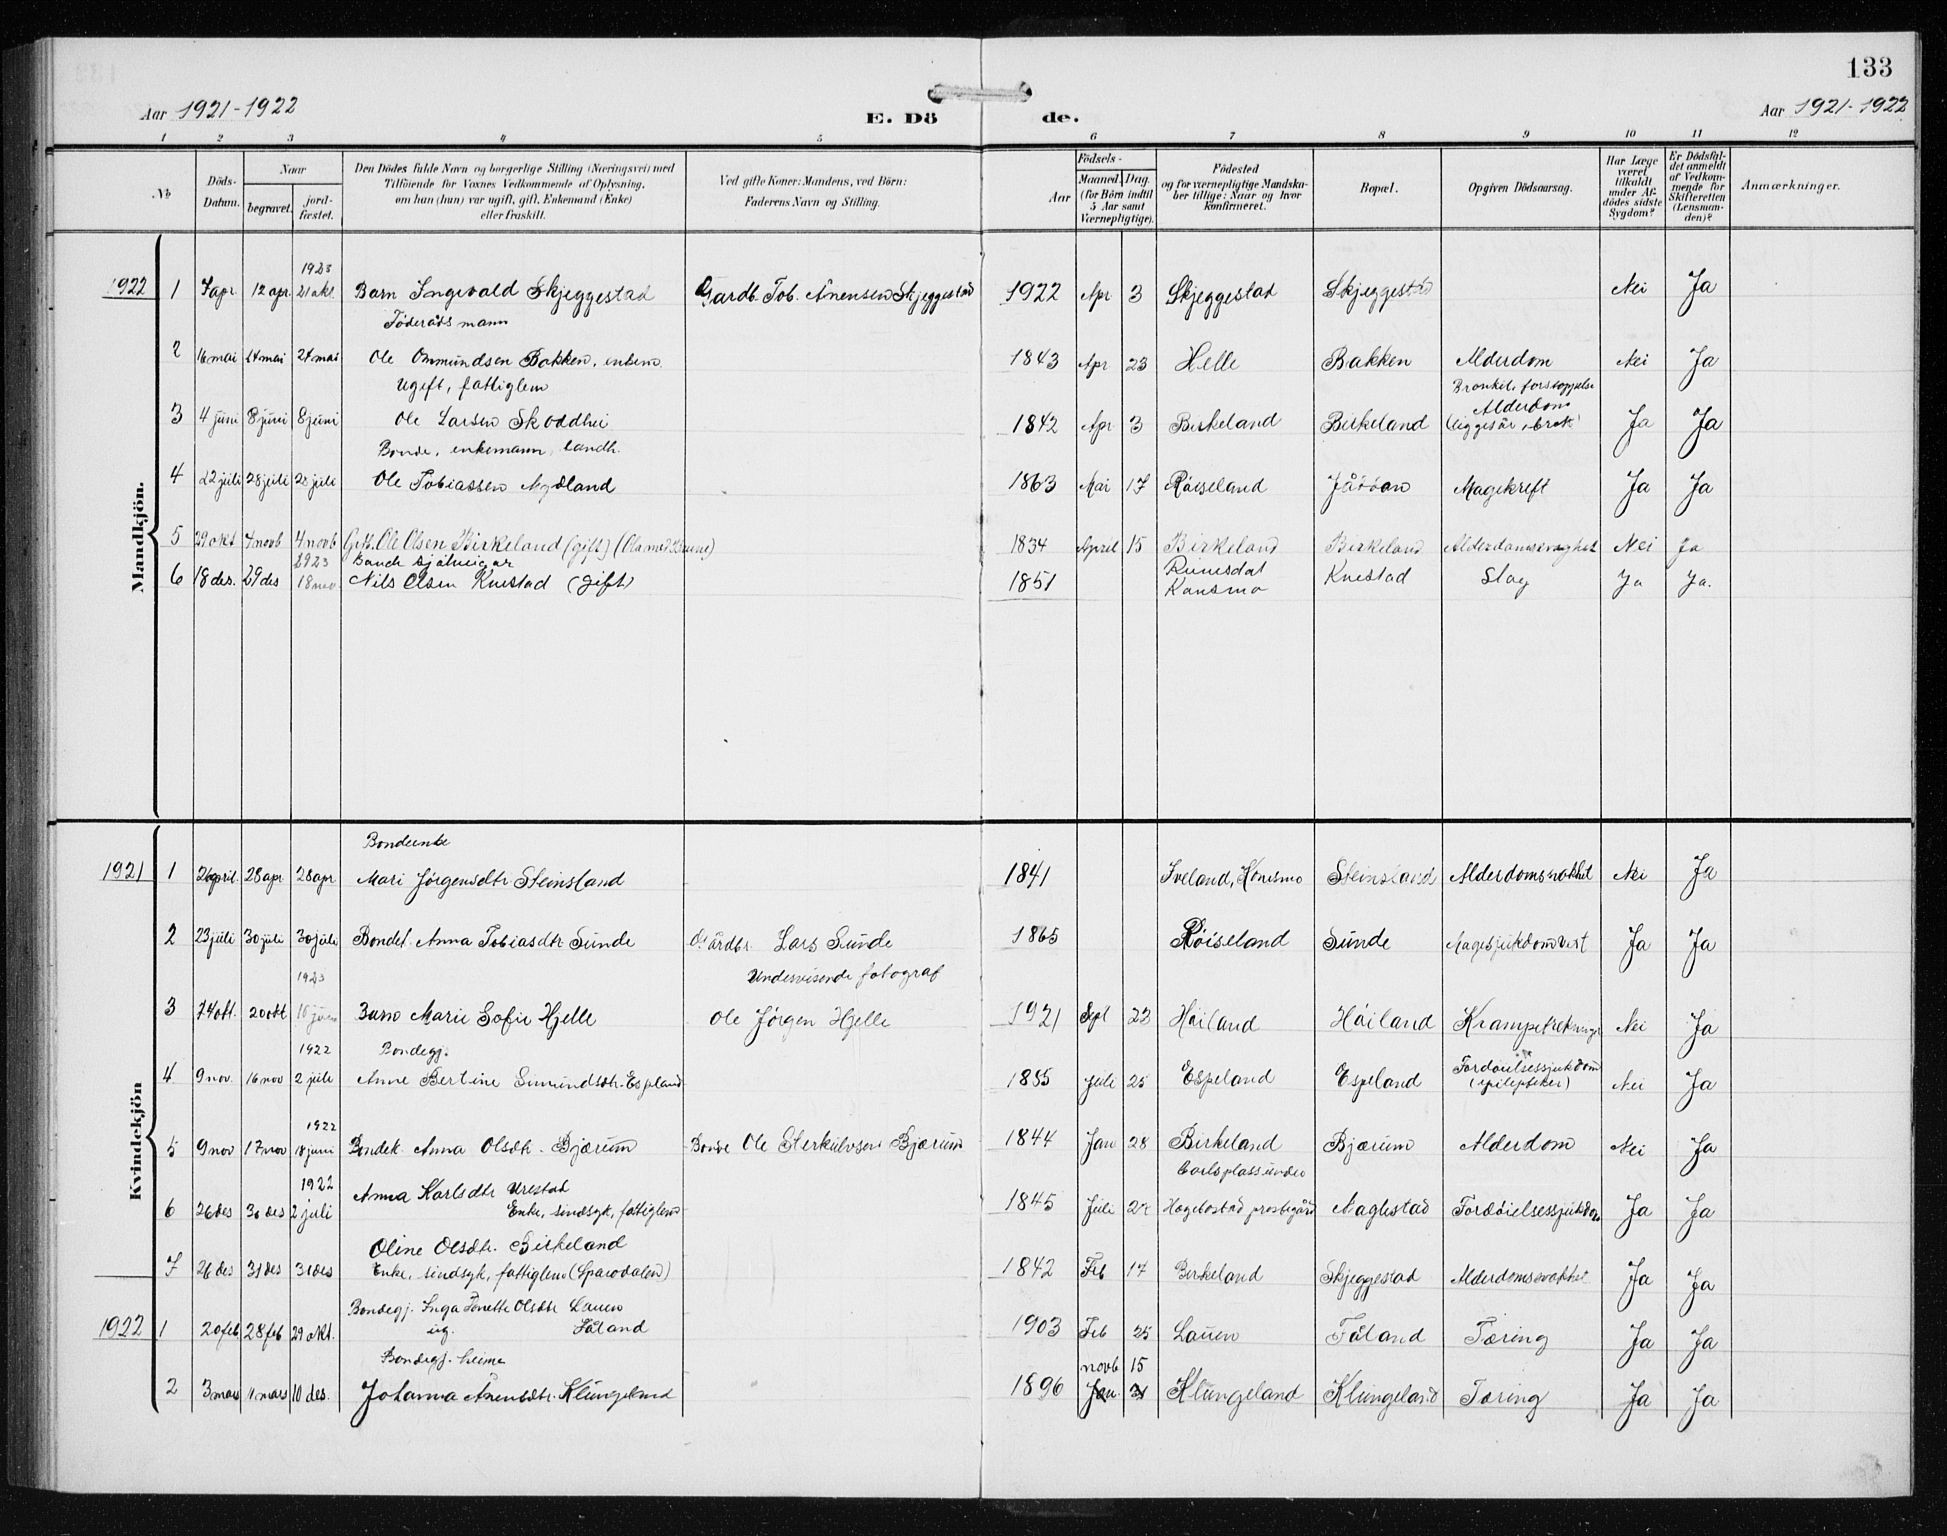 133
Aar 1921-1922
E. Dö de.
Aar 1921-1922
1 2 3 4 5 6 7 8 9 10 11 12
No
Döds-Datum.
Naar
begravet.
jord-fæstet.
Den Dödes fulde Navn og borgerlige Stilling (Næringsvei) med
Tilföiende for Voxnes Vedkommende af Oplysning,
om han (hun) var ugift, gift, Enkemand (Enke)
eller fraskilt.
Ved gifte Koner: Mandens, ved Börn:
Faderens Navn og Stilling.
Födsels-
Aar
Maaned. Dag.
(for Börn indtil
5 Aar samt
Værnepligtige).
Födested
og for værnepligtige Mandska-
ber tillige: Naar og hvor
konfirmeret.
Bopæl.
Opgiven Dödsaarsag.
Har Læge
været
tilkaldt
under Af-
dödes sidste
Sygdom?
Er Dödsfal-
det anmeldt
af Vedkom-
mende for
Skifteretten
(Lensman-
den)?
Anmærkninger.
Mandkjön.
1923
1922 1 7 apr 12 apr. 21 okt. Barn Ingvald Skjeggestad Gardb. Tob. Ånensen Skjeggestad 1922 Apr 3 Skjeggestad Skjeggestad Nei Ja
Föderåds mann
2 16 mai 24 mai 24 mai Ole Ommundsen Bakken, enkem. 1843 Apr 23 Helle Bakken Alderdom Nei Ja
Ugift, fattiglem
Alderdom
3 4 juni 8 juni 8 juni Ole Larsen Skoddhei 1842 Apr 3 Birkeland Birkeland Ja Ja
Bonde, enkemann, landh.
4 22 juli 28 juli 28 juli Ole Tobiassen Mydland 1863 Mai 17 Röiseland Magekreft Ja Ja
5 29 okt 4 novb 4 novb Ole Olsen Birkeland (gift) 1834 April 15 Birkeland Birkeland Alderdomsvaghet Nei Ja
1923 Bonde sjölveigar
6 18 des. 29 des 18 nov. Nils Olsen Knestad (gift) 1851 Konsmo Knestad Slag Ja Ja.
Kvindekjön
Bondeenke
1921 1 26 april. 28 apr 28 apr Mari Jørgensdtr Steinsland 1841 Iveland, Konsmo Steinsland Alderdomsvakhet Nei Ja
2 23 juli 30 juli 30 juli Bondek. Anna Tobiasdtr Sunde Gårdbr. Lars Sunde 1865 Röiseland Sunde Ja Ja
1923 Undervisende fotograf
3 14 okt. 20 okt 10 juni Barn Marie Sofie Hjelle Ole Jørgen Hjelle 1921 Sept 22 Höiland Höiland Krampetrekninger Nei Ja
1922 Bondegj.
4 9 nov. 16 nov 2 juli Anne Bertine Simundsdtr. Espeland 1885 Juli 25 Espeland Espeland Fordöielsessjukdom
(epileptiker) Nei Ja
1922
5 9 nov 17 nov 18 juni Bondek. Anna Olsdtr. Bjærum Bonde Ole Sterkulvsen Bjærum 1844 Jan 28 Birkeland Bjærum Alderdom Nei Ja
Carlsplass under
1922 Anna Karlsdtr Urestad
6 26 des 30 des 2 juli Enke, sindsyk, fattiglem 1845 Juli 24 Hægebostad prestegård Naglestad Fordöielsessjukdom Ja Ja
Oline Olsdtr. Birkeland
7 26 des 31 des 31 des Enke, sindsyk, fattiglem (Sparodalen) 1842 Feb 14 Birkeland Skjeggestad Alderdomsvakhet Ja Ja
Bondegj. Inga Tonette Olsdtr Lauen
1922 1 20 feb 28 feb 29 okt. ug. Fåland 1903 Feb 25 Lauen Fåland Tæring Ja Ja
Bondegj. heime
novb 15
2 3 mars 11 mars 10 des. Johanna Ånensdtr. Klungeland 1896 Jan. 31 Klungeland Klungeland Tæring Ja Ja